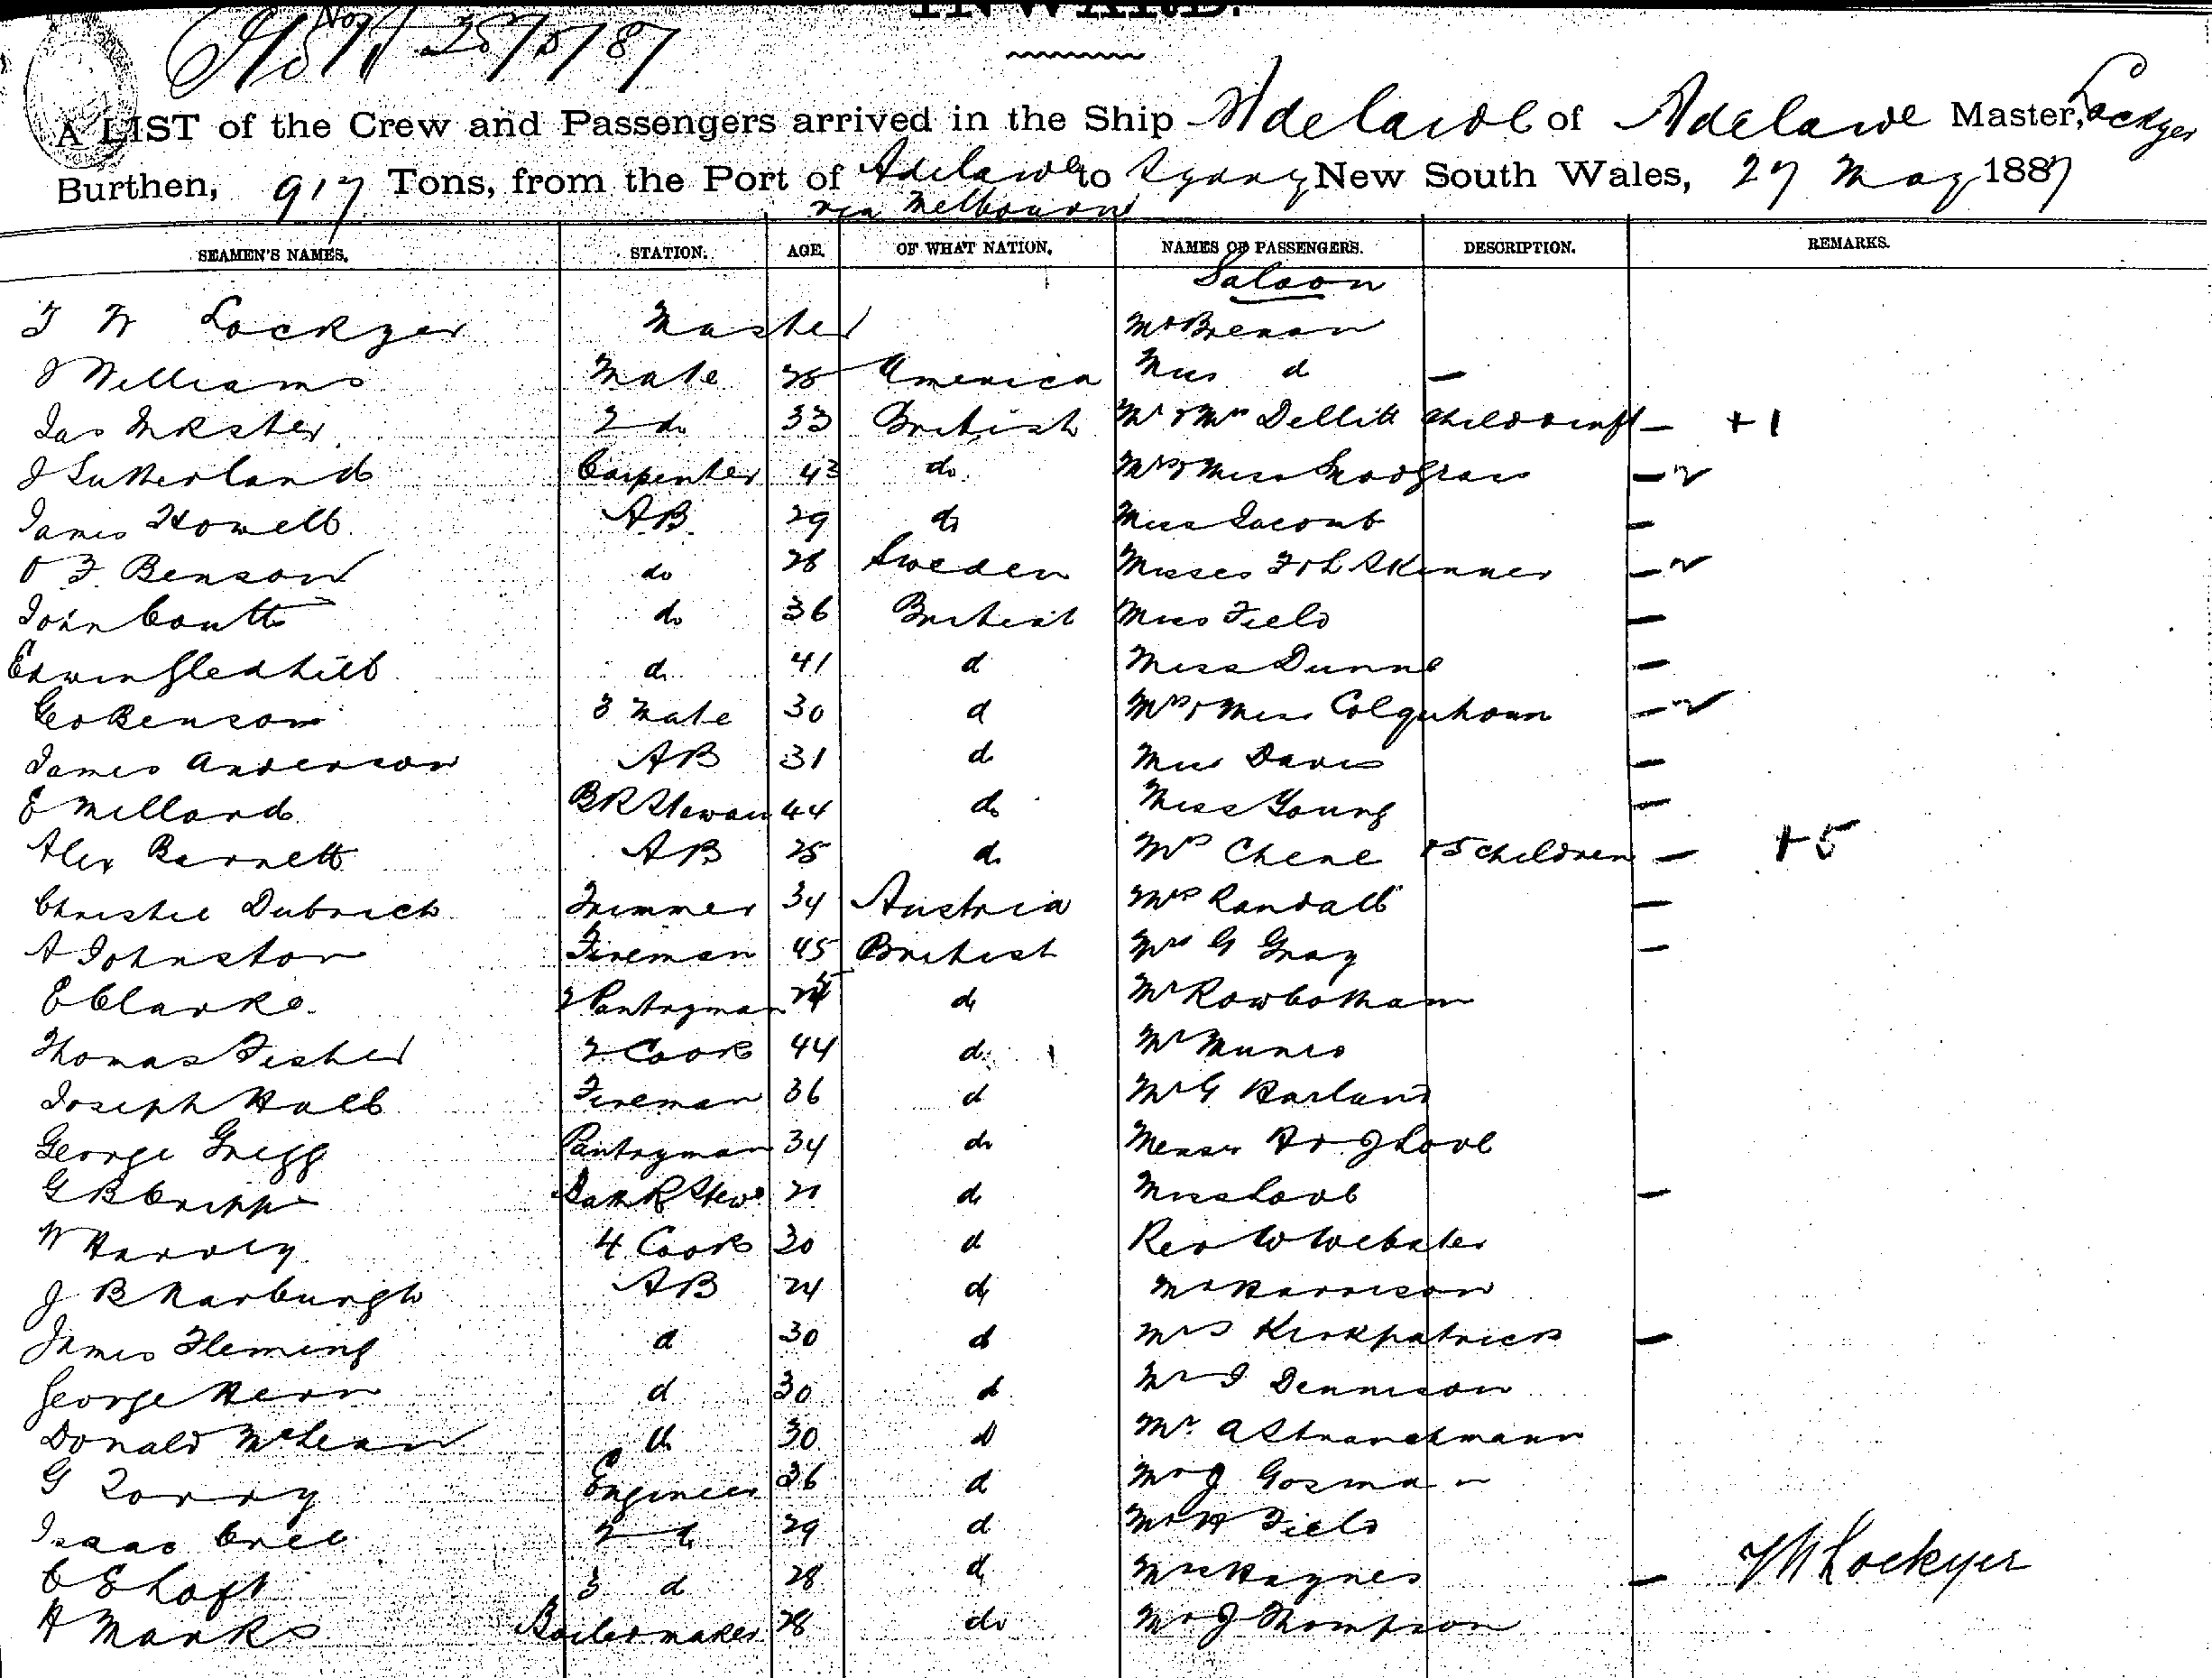 INWARD.
25/5/87
A LIST of the Crew and Passengers arrived in the Ship Adelaide of Adelaide Master, Lockyer
Burthen, 917 Tons, from the Port of Adelaide to Sydney New South Wales, 27 May 1887
via Melbourne
SEAMEN'S NAMES. STATION. AGE. OF WHAT NATION. NAMES OF PASSENGERS. DESCRIPTION. REMARKS.
Saloon
T W Lockyer Master Mr Brenan
J Williams Mate America Miss d —
Jas Inkster 2 do 33 British Mr & Mrs Dellitt Child & inft — +1
J Sutherland Carpenter 43 do Mrs & Miss Snodgrass —
James Howell AB 29 do Miss Jacomb —
O F Benson do 28 Sweden Misses F & L Skinner —
John Coutts do 36 British Miss Field —
Edwin Gledhill d 41 d Miss Dunne —
Geo Benson 3 Mate 30 d Mrs & Miss Colquhoun —
James Anderson AB 31 d Miss Davis —
E Millard BR Steward 44 do Miss Young —
Alex Barnett AB 25 d Mrs Chene & 5 children — +5
Christie Dubrich Trimmer 34 Austria Mrs Randall —
A Johnston Fireman 45 British Mrs G Gray —
E Clarke 2 Pantryman d Mr Rowbotham
Thomas Fisher 2 Cook 44 d Mr Munro
Joseph Hall Fireman 36 d Mr G Harland
George Gregg Pantryman 34 do Messrs H & J Love
G B Cripps Bath R Stewd 20 d Miss Love —
W Harvey 4 Cook 30 d Rev W Webster
J R Narburgh AB 24 d Mr Harrison
James Fleming d 30 d Mrs Kirkpatrick —
George Hern d 30 d Mr J Dennison
Donald McLean d 30 d Mr A Stranchmann
G Torry Engineer 36 d Mr J Gosman
Isaac Creb 2 d 29 d Mr H Field
C E Loft 3 d 28 d Mrs Haynes — T W Lockyer
H Marks Boilermaker 28 do Mr J Thompson